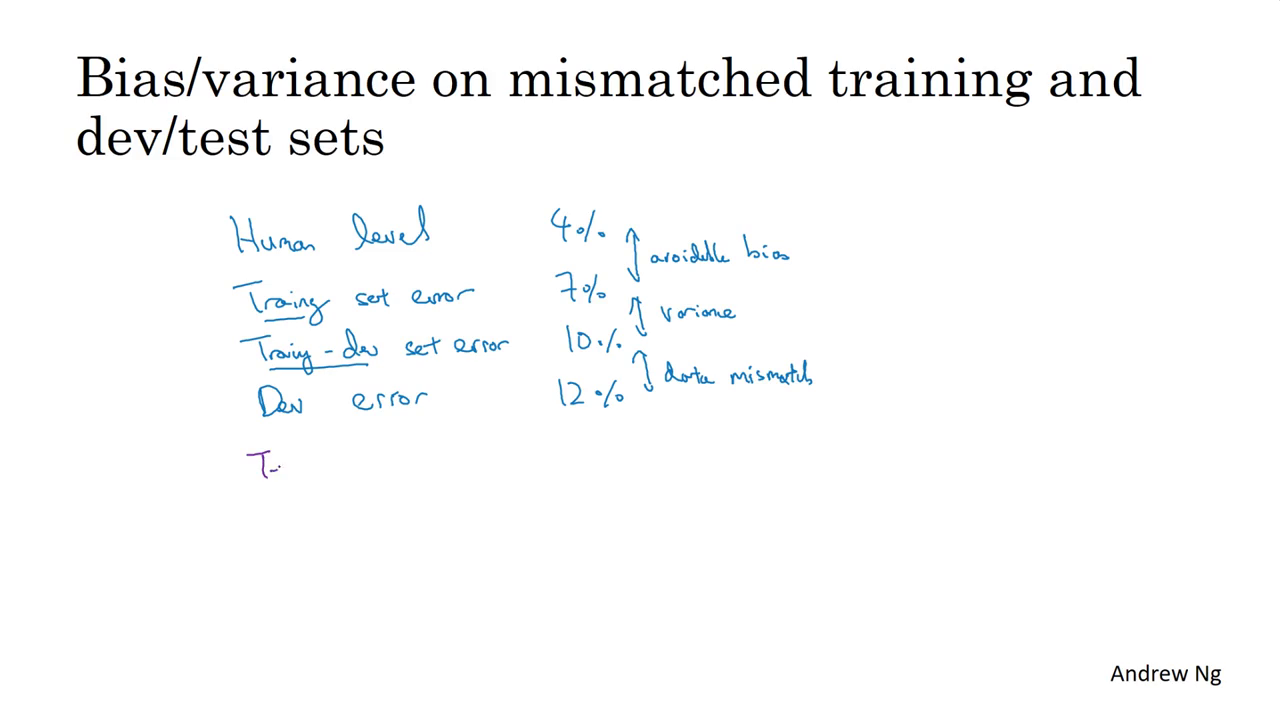 Bias/variance on mismatched training and
dev/test sets
Human level 4%
avoidable bias
Training set error 7%
variance
Training-dev set error 10%
data mismatch
Dev error 12%
T
Andrew Ng